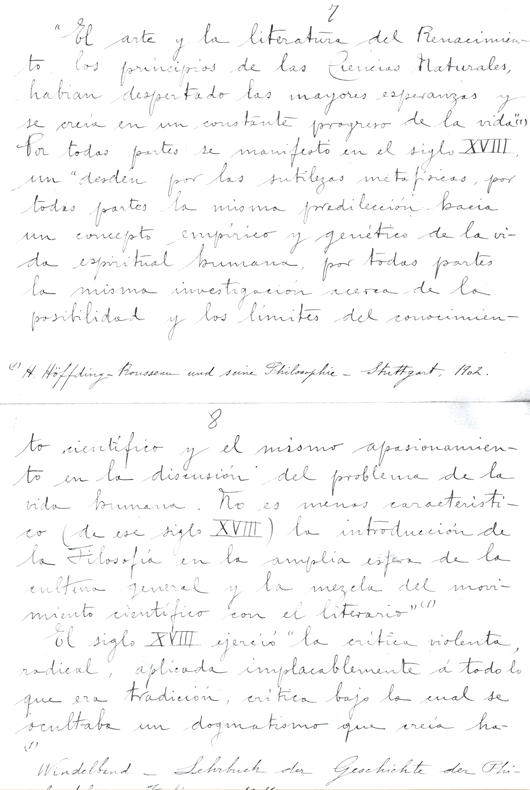 7
"El arte y la literatura del Renacimien-
to los principios de las Ciencias Naturales,
habían despertado las mayores esperanzas y
se creía en un constante progreso de la vida"(1)
Por todas partes se manifestó en el siglo XVIII,
un "desdén por las sutilezas metafísicas, por
todas partes la misma predilección hacia
un concepto empírico y genético de la vi-
da espiritual humana, por todas partes
la misma investigación acerca de la
posibilidad y los límites del conocimien-
(1) H. Höffding - Rousseau und seine Philosophie - Stuttgart, 1902.
8
to científico y el mismo apasionamien-
to en la discusión del problema de la
vida humana. No es menos característi-
co (de ese siglo XVIII) la introducción de
la Filosofía en la amplia esfera de la
cultura general y la mezcla del movi-
miento científico con el literario"(1)
El siglo XVIII ejerció "la crítica violenta,
radical, aplicada implacablemente á todo lo
que era tradición, crítica bajo la cual se
ocultaba un dogmatismo que creía ha-
(1)
Windelband - Lehrbuch der Geschichte der Phi-